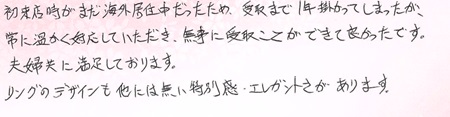 初来店時がまだ海外居住中だったため、受取まで1年掛かってしまったが、
常に温かく対応していただき、無事に受取ことができて良かったです。
夫婦共に満足しております。
リングのデザインも他には無い特別感・エレガントさがあります。